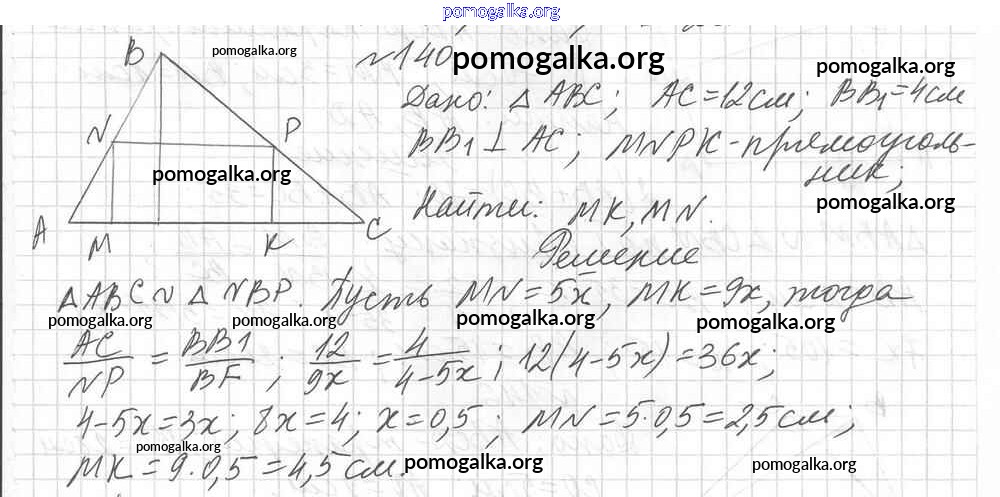 pomogalka.org
pomogalka.org
№140
pomogalka.org
pomogalka.org
B
N
P
A
M
K
C
pomogalka.org
Дано: △ABC; AC=12см; BB1=4см
BB1⊥AC; MNPK-прямоуголь-
ник;
pomogalka.org
Найти: MK, MN.
Решение
△ABC∾△NBP. Пусть MN=5x, MK=9x, тогда
pomogalka.org pomogalka.org pomogalka.org pomogalka.org
AC/NP = BB1/BF; 12/9x = 4/4-5x; 12(4-5x)=36x;
4-5x=3x; 8x=4; x=0,5; MN=5·0,5=2,5см;
pomogalka.org
MK=9·0,5=4,5см.
pomogalka.org pomogalka.org